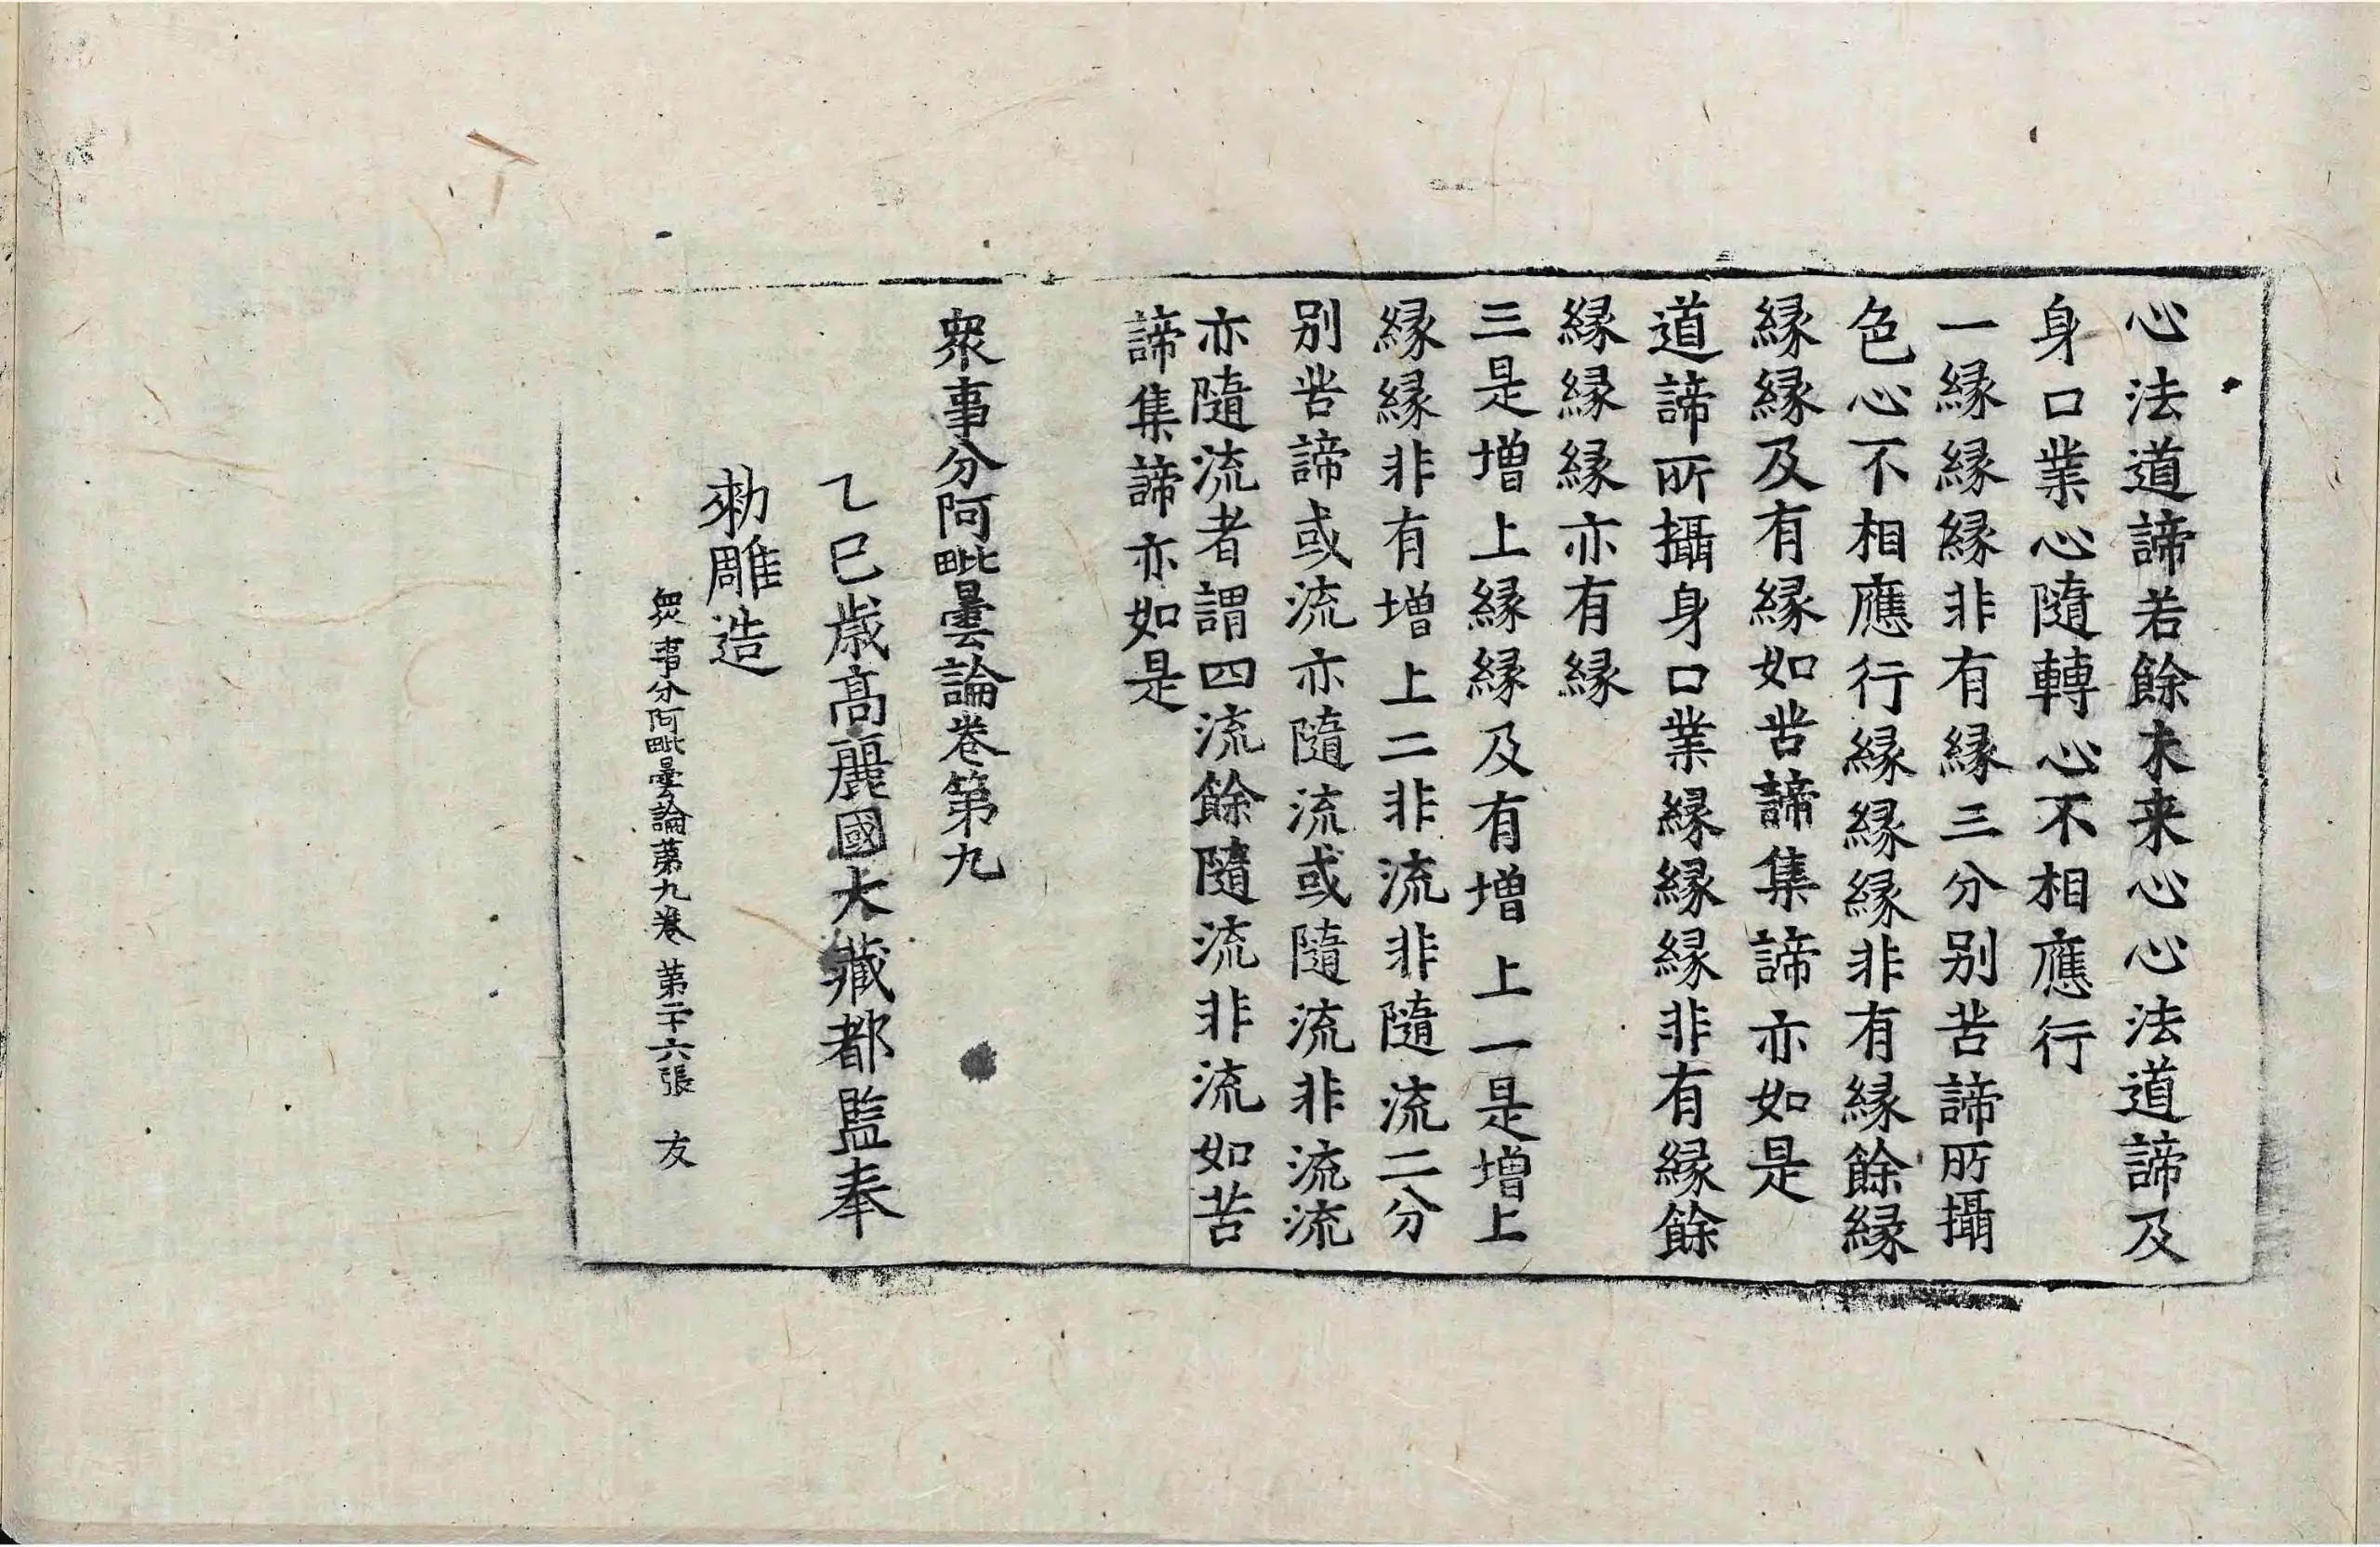 心法道諦若餘未来心心法道諦及
身口業心隨轉心不相應行
一緣緣緣非有緣三分別苦諦所攝
色心不相應行緣緣緣非有緣餘緣
緣緣及有緣如苦諦集諦亦如是
道諦所攝身口業緣緣緣非有緣餘
緣緣緣亦有緣
三是增上緣緣及有增上一是增上
緣緣非有增上二非流非隨流二分
別苦諦或流亦隨流或隨流非流流
亦隨流者謂四流餘隨流非流如苦
諦集諦亦如是
衆事分阿毗曇論卷第九
乙巳歲高麗國大藏都監奉
勑雕造
衆事分阿毗曇論第九卷 第二十六張 友